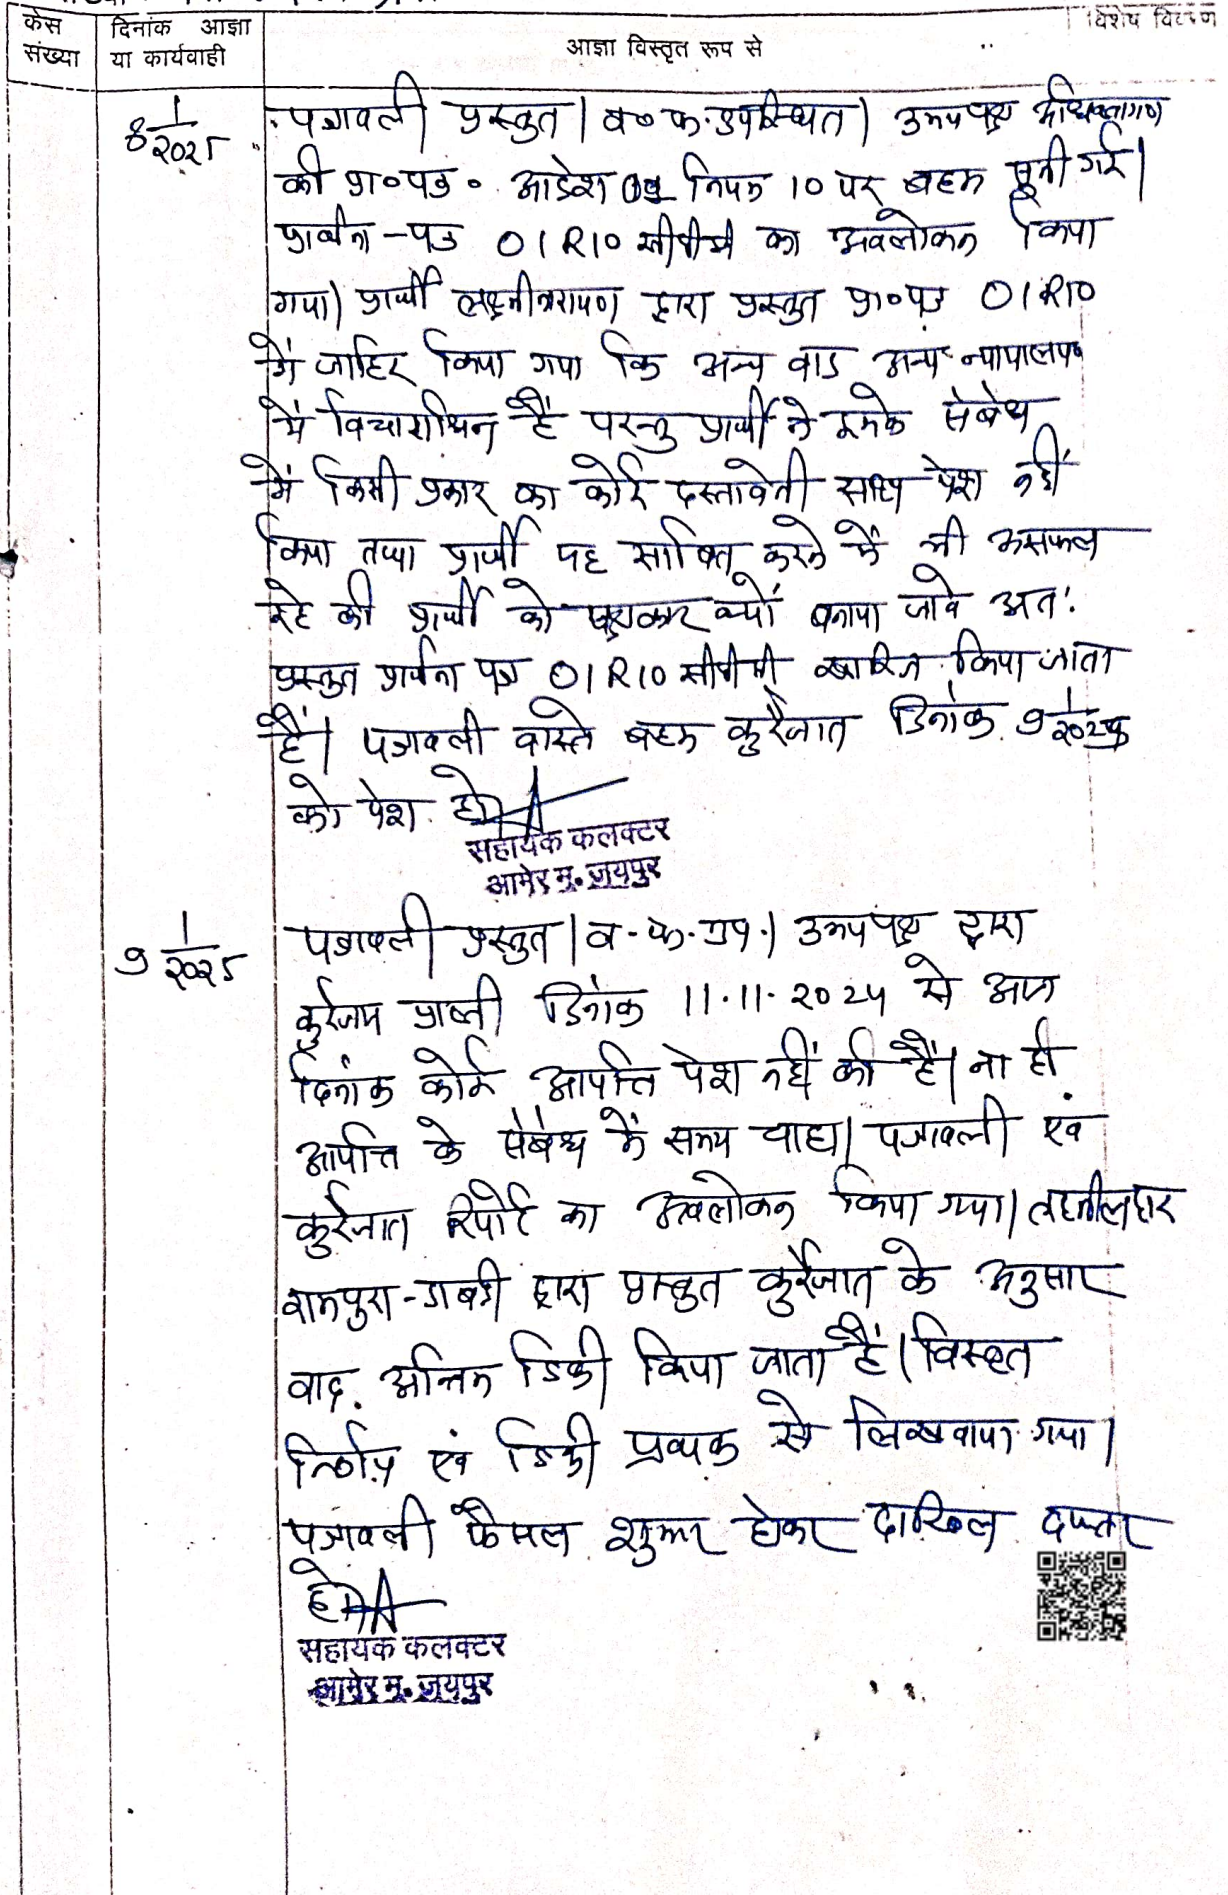 केस संख्या
दिनांक आज्ञा या कार्यवाही
आज्ञा विस्तृत रूप से
विशेष विवरण
8 1/2025
पत्रावली प्रस्तुत। व० फ. उपस्थित। उभयपक्ष अधिवक्तागण
की प्रा०पत्र० आदेश 01 नियम 10 पर बहस सुनी गई।
प्रार्थना-पत्र 01 R10 सीपीसी का अवलोकन किया
गया। प्रार्थी लक्ष्मीनारायण द्वारा प्रस्तुत प्रा०पत्र 01 R10
में जाहिर किया गया कि अन्य वाद अन्य न्यायालय
में विचाराधिन है परन्तु प्रार्थी ने इसके संबंध
में किसी प्रकार का कोई दस्तावेजी साक्ष्य पेश नहीं
किया तथा प्रार्थी यह साबित करने में भी असफल
रहे की प्रार्थी को पक्षकार क्यों बनाया जावे अतः
प्रस्तुत प्रार्थना पत्र 01 R10 सीपीसी खारिज किया जाता
है। पत्रावली वास्ते बहस कुर्रेजात दिनांक 9 1/2025
को पेश हो।
सहायक कलक्टर
आमेर मु. जयपुर
9 1/2025
पत्रावली प्रस्तुत। व. फ. उप.। उभयपक्ष द्वारा
कुर्रेजात प्राप्ती दिनांक 11.11.2024 से आज
दिनांक कोई आपत्ति पेश नहीं की है। ना ही
आपत्ति के संबंध में समय चाहा। पत्रावली एवं
कुर्रेजात रिपोर्ट का अवलोकन किया गया। तहसीलदार
रामपुरा-डाबडी द्वारा प्रस्तुत कुर्रेजात के अनुसार
वाद अन्तिम डिक्री किया जाता है। विस्तृत
निर्णय एवं डिक्री पृथक से लिखवाया गया।
पत्रावली फैसल शुमार होकर दाखिल दफ्तर
हो।
सहायक कलक्टर
आमेर मु. जयपुर